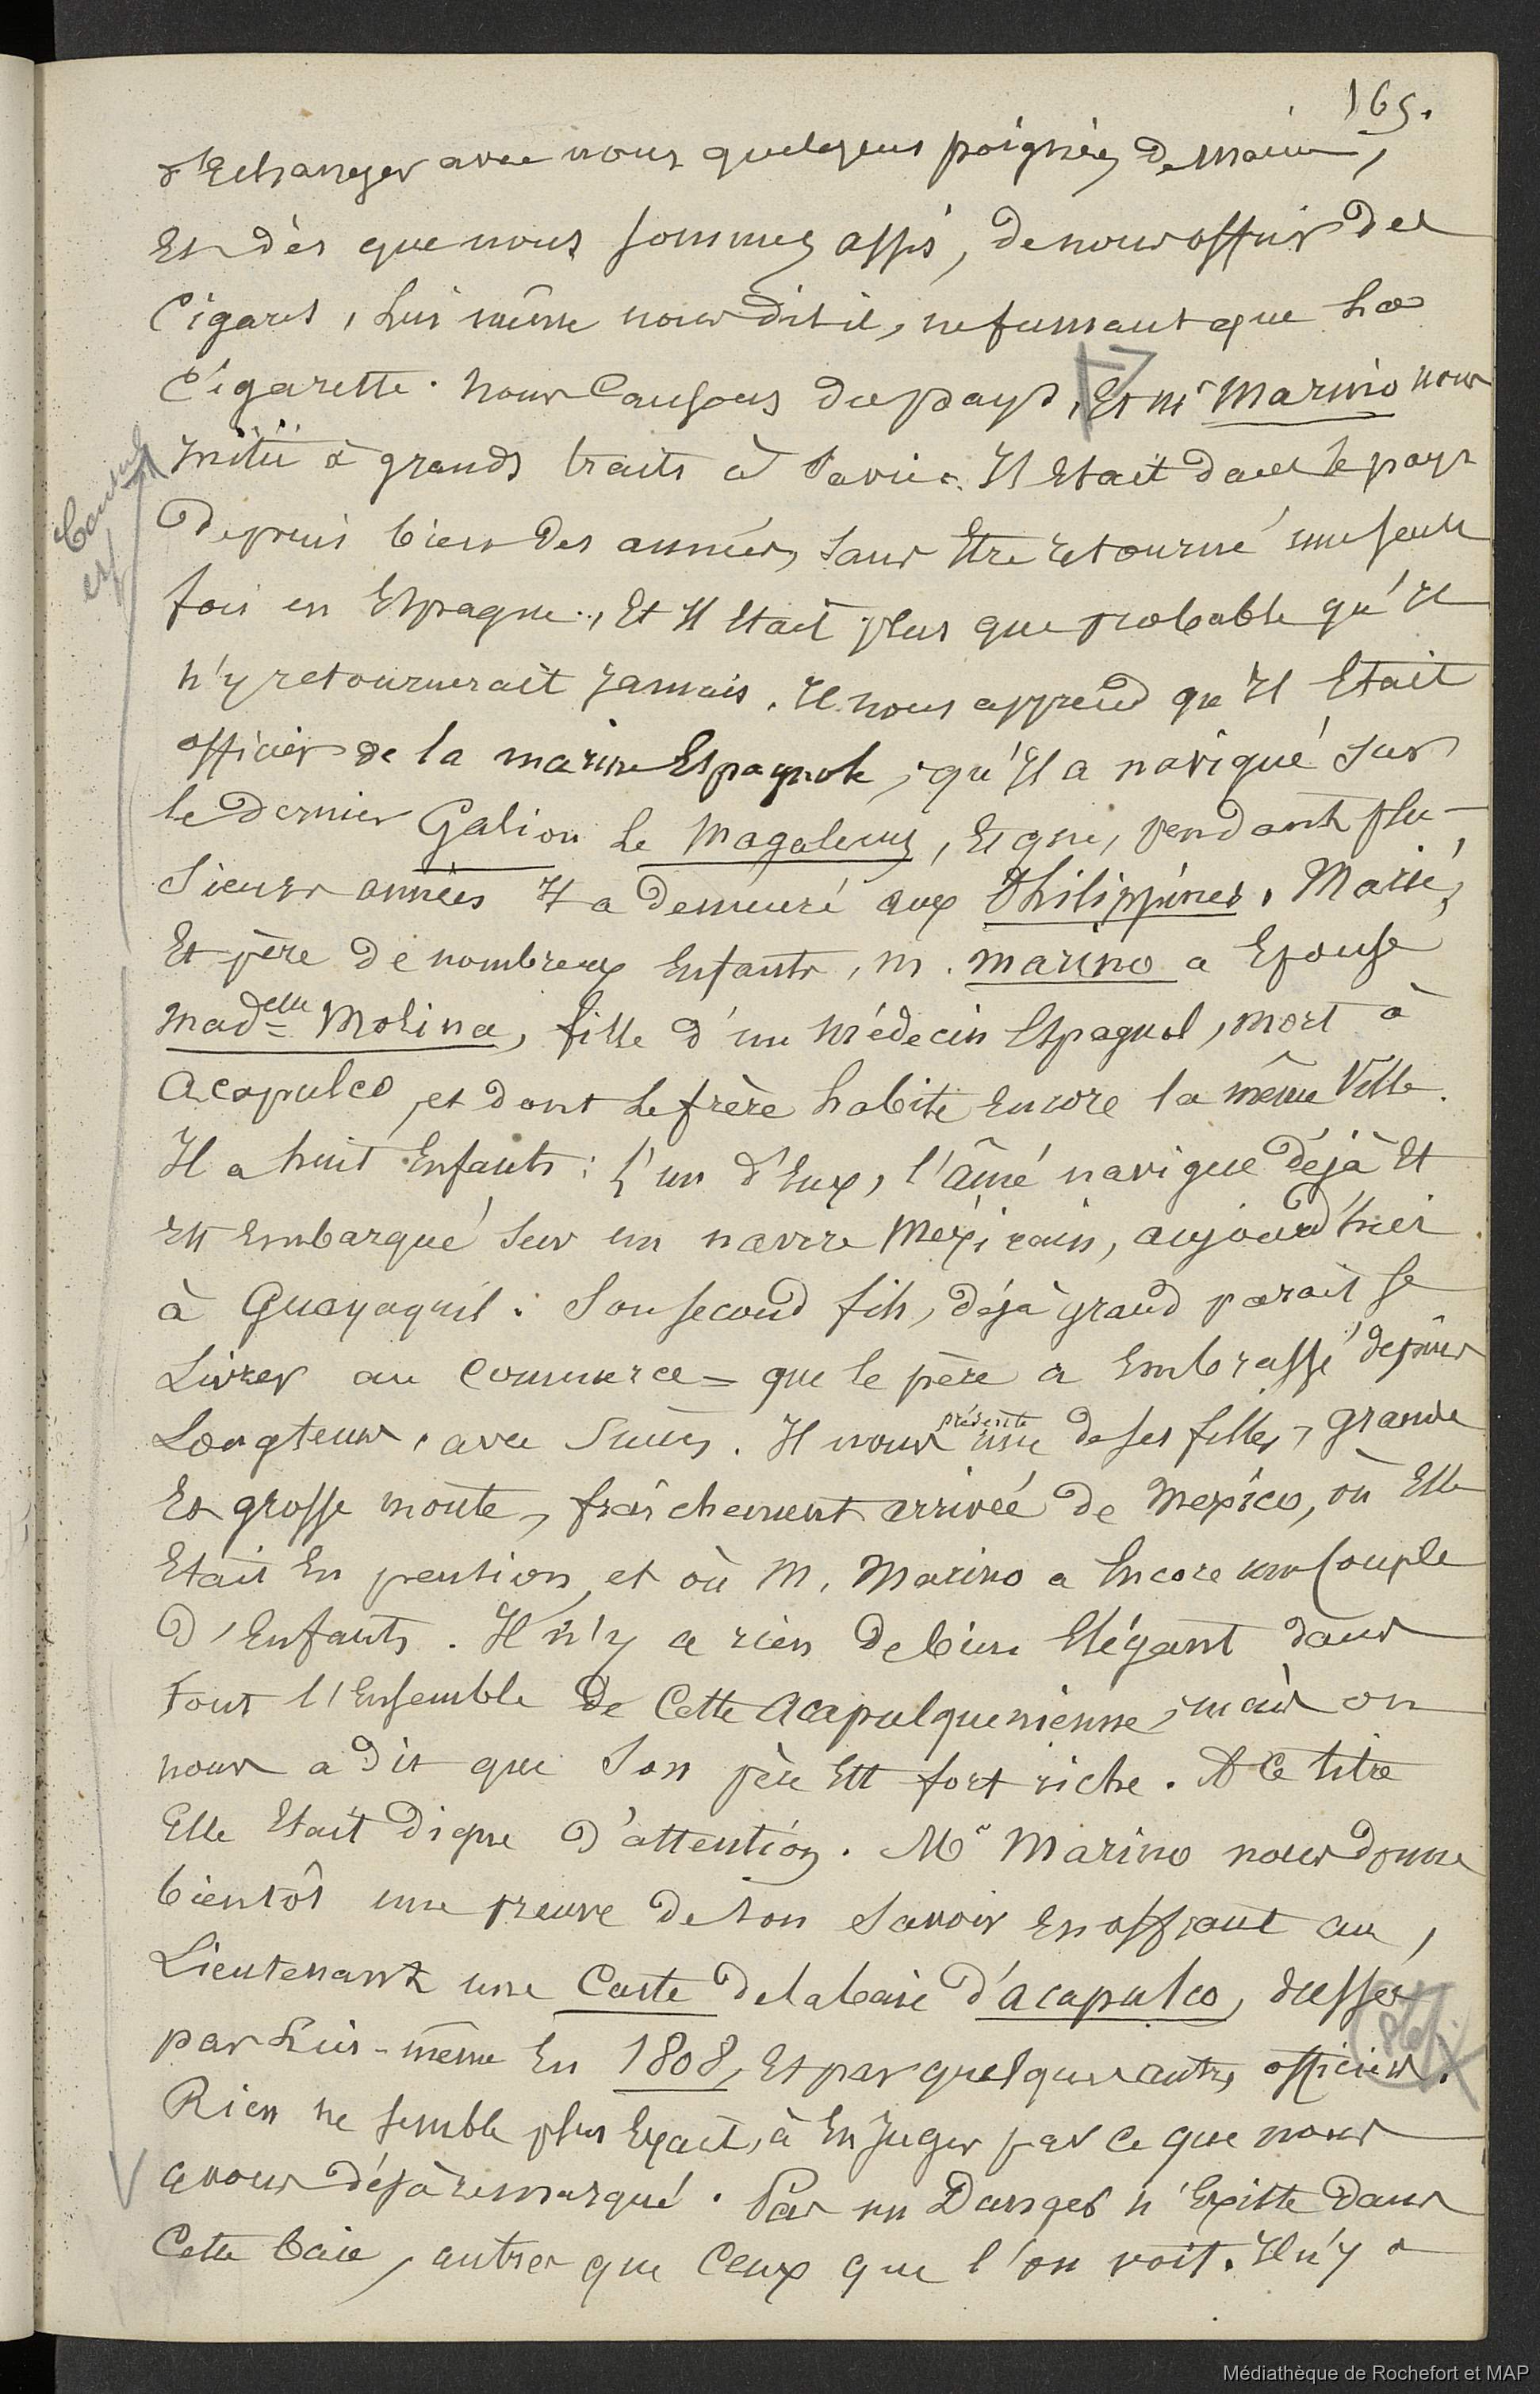 165.
d'Echanger avec nous quelques poignées de main,
Et dès que nous sommes assis, de nous offrir des
Cigares, Lui même nous dit il, ne fumant que la
Cigarette. Nous Causons du pays, Et Mr Marino nous
Initie à grands traits à sa vie. Il Etait dans le pays
Depuis bien des années, sans Etre retourné une seule
fois en Espagne, Et Il Etait plus que probable qu'Il
n'y retournerait Jamais. Il nous apprend qu'Il Etait
officier de la marine Espagnole, qu'Il a navigué sur
le dernier Galion Le Magalens, Et que, pendant plu-
sieurs années Il a demeuré aux Philippines. Marié,
Et père de nombreux Enfants, M. Marino a Epousé
Madelle Molina, fille d'un Médecin Espagnol, mort à
Acapulco, et dont le frère habite Encore la même Ville.
Il a huit Enfants: L'un d'Eux, l'âiné navigue déjà Et
Est Embarqué sur un navire Méxicain, aujourd'hui
à Guayaquil. Son second fils, déjà grand parait se
Livrer au Commerce = que le père a Embrassé depuis
Longtems, avec Succès. Il nous présente une de ses filles, grande
Et grosse moute, fraîchement arrivée de Mexico, où Elle
Etait En pention, et où M. Marino a Encore un Couple
d'Enfants. Il n'y a rien de bien Elégant dans
tout l'Ensemble de Cette Acapulquenienne, mais on
nous a dit que Son père Est fort riche. A Ce titre
Elle Etait digne d'attention. Mr Marino nous donne
bientôt une preuve de son savoir En offrant au
Lieutenant une Carte de la baie d'Acapulco, dressée
par Lui-même En 1808, Et par quelques autres officiers.
Rien ne semble plus Exact, à En Juger par Ce que nous
avons déjà remarqué. Pas un Danger n'Existe dans
Cette baie, autres que Ceux que l'on voit. Il n'y a
Médiathèque de Rochefort et MAP